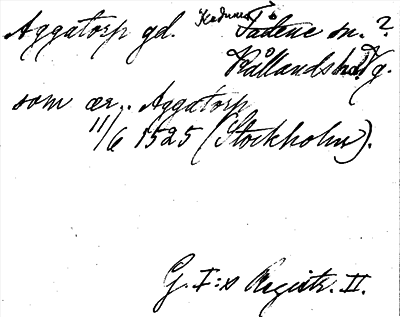 Aggatorp gd. Kedums Tådene sn.?
Kållands hd Vg.
som ær. Aggatorp
11/6 1525 (Stockholm).
G. I:s Registr. II.